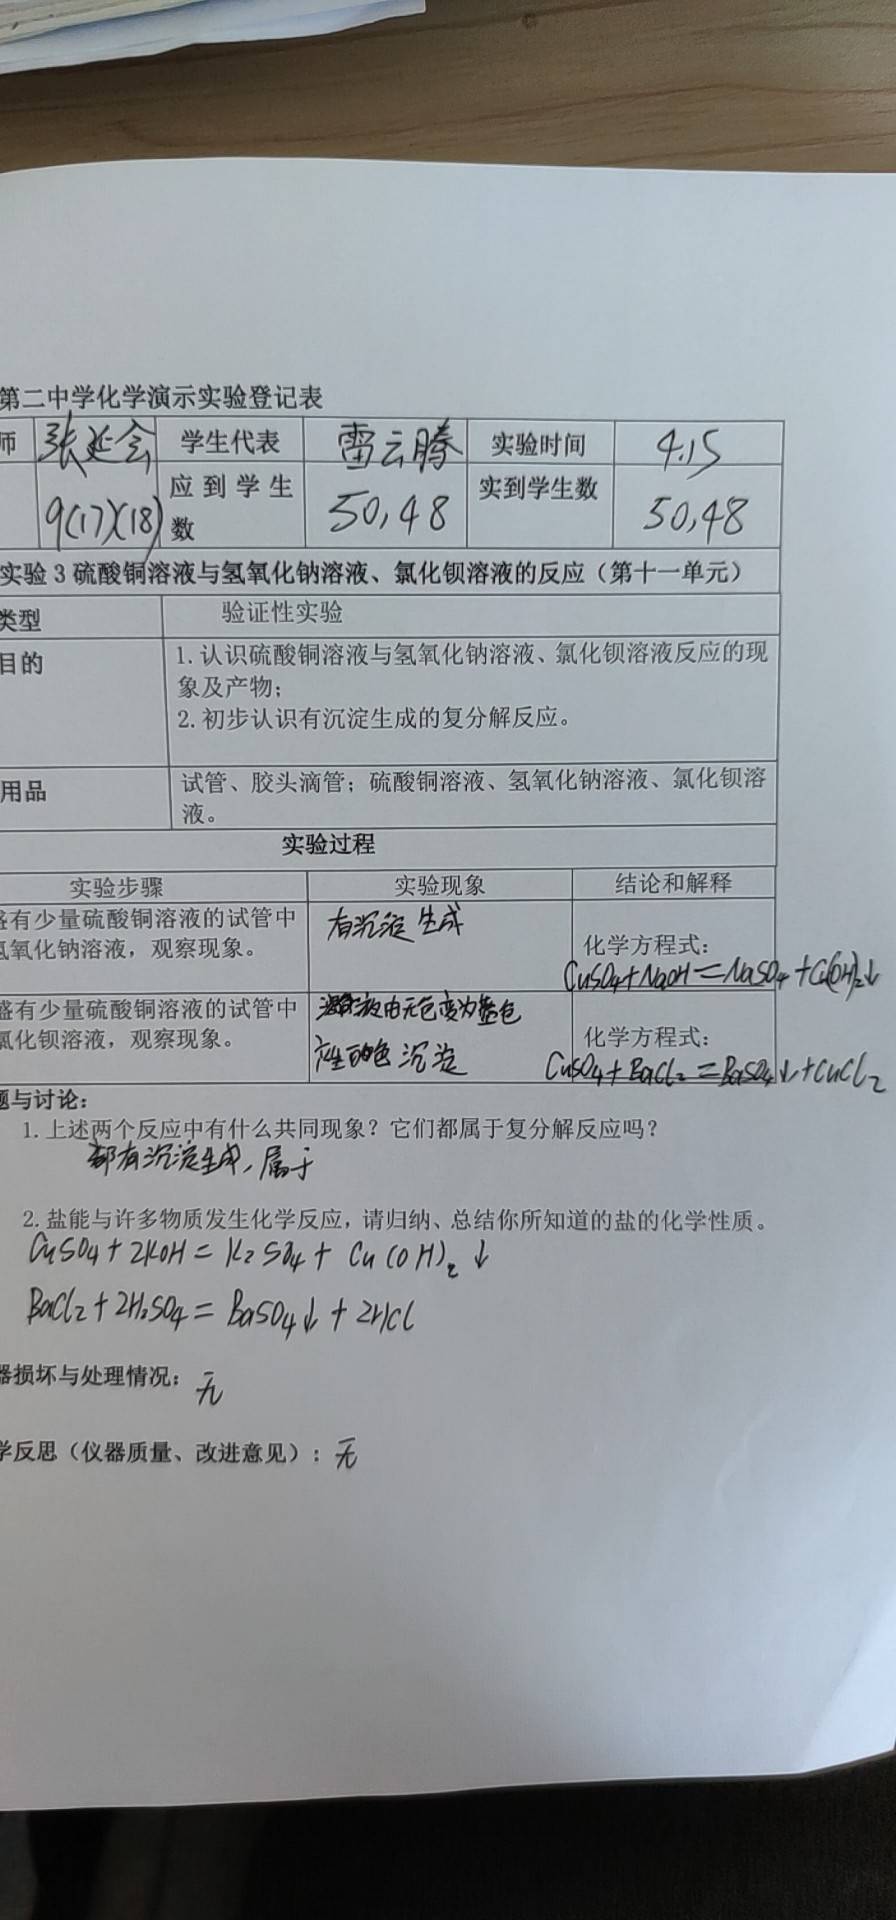 第二中学化学演示实验登记表
师 张延会 学生代表 雷云腾 实验时间 4.15
9(17)(18) 应到学生数 50,48 实到学生数 50,48
实验3 硫酸铜溶液与氢氧化钠溶液、氯化钡溶液的反应（第十一单元）
类型 验证性实验
目的 1.认识硫酸铜溶液与氢氧化钠溶液、氯化钡溶液反应的现
象及产物；
2.初步认识有沉淀生成的复分解反应。
用品 试管、胶头滴管；硫酸铜溶液、氢氧化钠溶液、氯化钡溶
液。
实验过程
实验步骤 实验现象 结论和解释
盛有少量硫酸铜溶液的试管中 有沉淀生成
氢氧化钠溶液，观察现象。 化学方程式：
CuSO4+NaOH=NaSO4+Cu(OH)2↓
盛有少量硫酸铜溶液的试管中 溶液由无色变为蓝色
氯化钡溶液，观察现象。 化学方程式：
产生白色沉淀 CuSO4+BaCl2=BaSO4↓+CuCl2
题与讨论：
1.上述两个反应中有什么共同现象？它们都属于复分解反应吗？
都有沉淀生成，属于
2.盐能与许多物质发生化学反应，请归纳、总结你所知道的盐的化学性质。
CuSO4+2KOH=K2SO4+Cu(OH)2↓
BaCl2+2H2SO4=BaSO4↓+2HCl
器损坏与处理情况：无
学反思（仪器质量、改进意见）：无